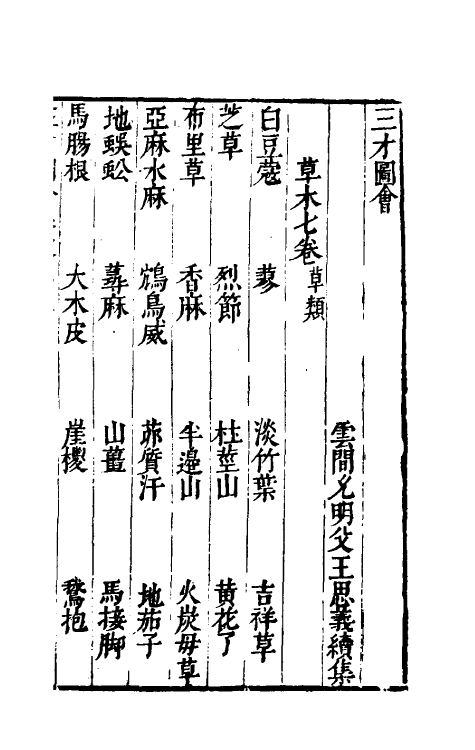 三才圖會
雲間允明父王思義續集
草木七卷 草類
白豆蔻 蓼 淡竹葉 吉祥草
芝草 烈節 杜莖山 黄花了
布里草 香麻 半邉山 火炭毋草
亞麻水麻 鴆鳥威 茆質汗 地茄子
地蜈蚣 蕁麻 山薑 馬接脚
馬腸根 大木皮 崖椶 鵞抱